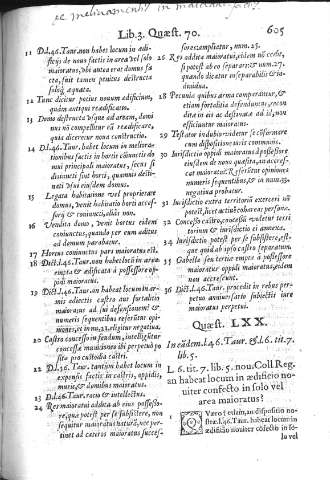 Lib.3. Quæst. 70. 605
11 D.l.46.Taur. non habet locum in ædi-
ficijs de nouo factis in area vel solo
maioratus, vbi antea erat domus fa-
cta, fuit tamen penitus destructa
soloq; æquata.
12 Tunc dicitur penitus nouum ædificium,
quãdo antiquũ restauratur.
13 Domo destructa vsque ad aream, domi
nus nõ compellitur eã reædificare,
quia diceretur noua constructio.
14 D.l.46.Taur. habet locum in meliora-
tionibus factis in hortis cõnectis do
mui principali maioratus, secus si
distincti sint horti, quamuis desti-
nati vsui eiusdem domus.
15 Legata habitatione vel proprietate
domus, venit habitatio horti acces-
sorij & coniuncti, alias non.
16 Vendita domo, venit hortus eidem
coniunctus, quando per eum aditus
ad domum parabatur.
17 Hortus coniunctus pars maioratus est.
18 Dict.l.46.Taur. non habet locũ in area
empta & ædificata à possessore op-
pidi maioratus.
19 Dict.l.46.Taur. an habeat locum in ar-
mis adiectis castro aut fortalitio
maioratus ad sui defensionem? &
numeris sequentibus referũtur opi-
niones, et in nu.22. eligitur negatiua.
20 Castro concesso in feudum, intelligitur
concessa munitiones ibi perpetuò po
sitæ pro custodia castri.
22 D.l.46.Taur. tantùm habet locum in
expensis factis in castris, oppidis,
muris, & domibus maioratus.
23 D.l.46.Taur. ratio & intellectus.
24 Res maioratui addita ab eius possesso-
re, quæ potest per se subsistere, non
sequitur maioratus naturã, nec per-
tinet ad cæteros maioratus succes-
sores
26 Res addita maioratui, eidem nõ cedit,
si potest ab eo separari: & num.27.
quando dicatur inseparabilis & in-
diuidua.
28 Pecunia quibus arma comparantur, &
etiam fortalitia defendantur, ex con
dita in ais ac destinata ad id, non
efficiuntur maioratus.
29 Testator indubiè videtur se cõformare
cum dispositione iuris communis.
30 Iurisdictio oppidi maioratus à possessore
eiusdem de nouo quæsita, an accres-
cat maioratui? Referũtur opiniones
numeris sequentibus, & in num.35.
negatiua probatur.
31 Iurisdictio extra territorij exercẽti nõ
potest, licet actu cohæreat personæ.
32 Castro concesso, concessũ videtur terri
torium & iurisdictio ei annexa.
34 Iurisdictio potest per se subsistere, est-
que quid ab ipso castro separatum.
35 Gabella seu tertiæ emptæ à possessore
maioratus oppidi maioratus, eidem
non accrescunt.
36 Dict.l.46.Taur. procedit in rebus per-
petuò anniuersario subiectis iure
maioratus perpetui.
Quæst. LXX.
In eãdem.l.46.Taur. & l.6.tit.7.
lib.5.
L. 6. tit. 7. lib. 5. nou. Coll. Reg.
an habeat locum in ædificio no
uiter confecto in solo vel
area maioratus?
1 QVæro etenim, an dispositio no-
stræ.l.46.Taur. habeat locum in
ædificio nouiter obfecto in so-
lo vel